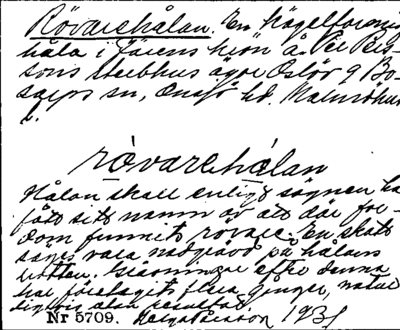 Rövarehålan. En kägelformig
håla i Färens hörn å Per Pers-
sons stubbhus ägor Oslöv 9 Bo-
sarps sn, Onsjö hd. Malmöhus
l.
rövarehålan
Hålan skall enligt sägnen ha
fått sitt namn av att där for-
dom funnits rövare. En skatt
säges vara nedgrävd på hålans
botten. Grävningar efter denna
har företagits flera gånger, natur-
ligtvis utan resultat.
Nr 5709. Helga Persson 1931